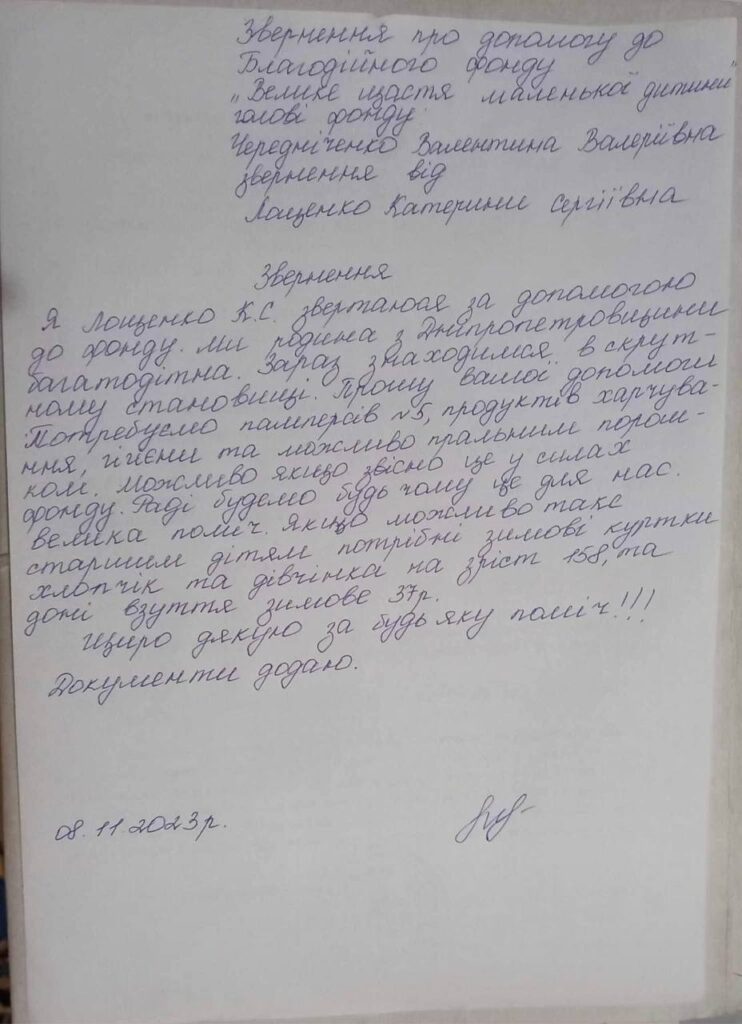 Звернення про допомогу до
Благодійного фонду
„Велике щастя маленької дитини"
голові фонду
Чередніченко Валентина Валеріївна
звернення від
Лощенко Катерини Сергіївна
Звернення
Я Лощенко К.С. звертаюся за допомогою
до фонду. Ми родина з Дніпропетровщини
багатодітна. Зараз знаходимся в скрут-
ному становищі. Прошу вашої допомоги
Потребуємо памперсів №5, продуктів харчува-
ння, гігієни та можливо пральним порош-
ком. Можливо якщо звісно це у силах
фонду. Раді будемо будь чому це для нас.
велика поміч. Якщо можливо такє
старшим дітям потрібні зимові куртки
хлопчік та дівчінка на зріст 158, та
доні взуття зимове 37р.
Щиро дякую за будь яку поміч!!!
Документи додаю.
08.11.2023р.